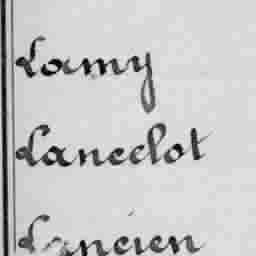 Lamy
Lancelot
Lancien